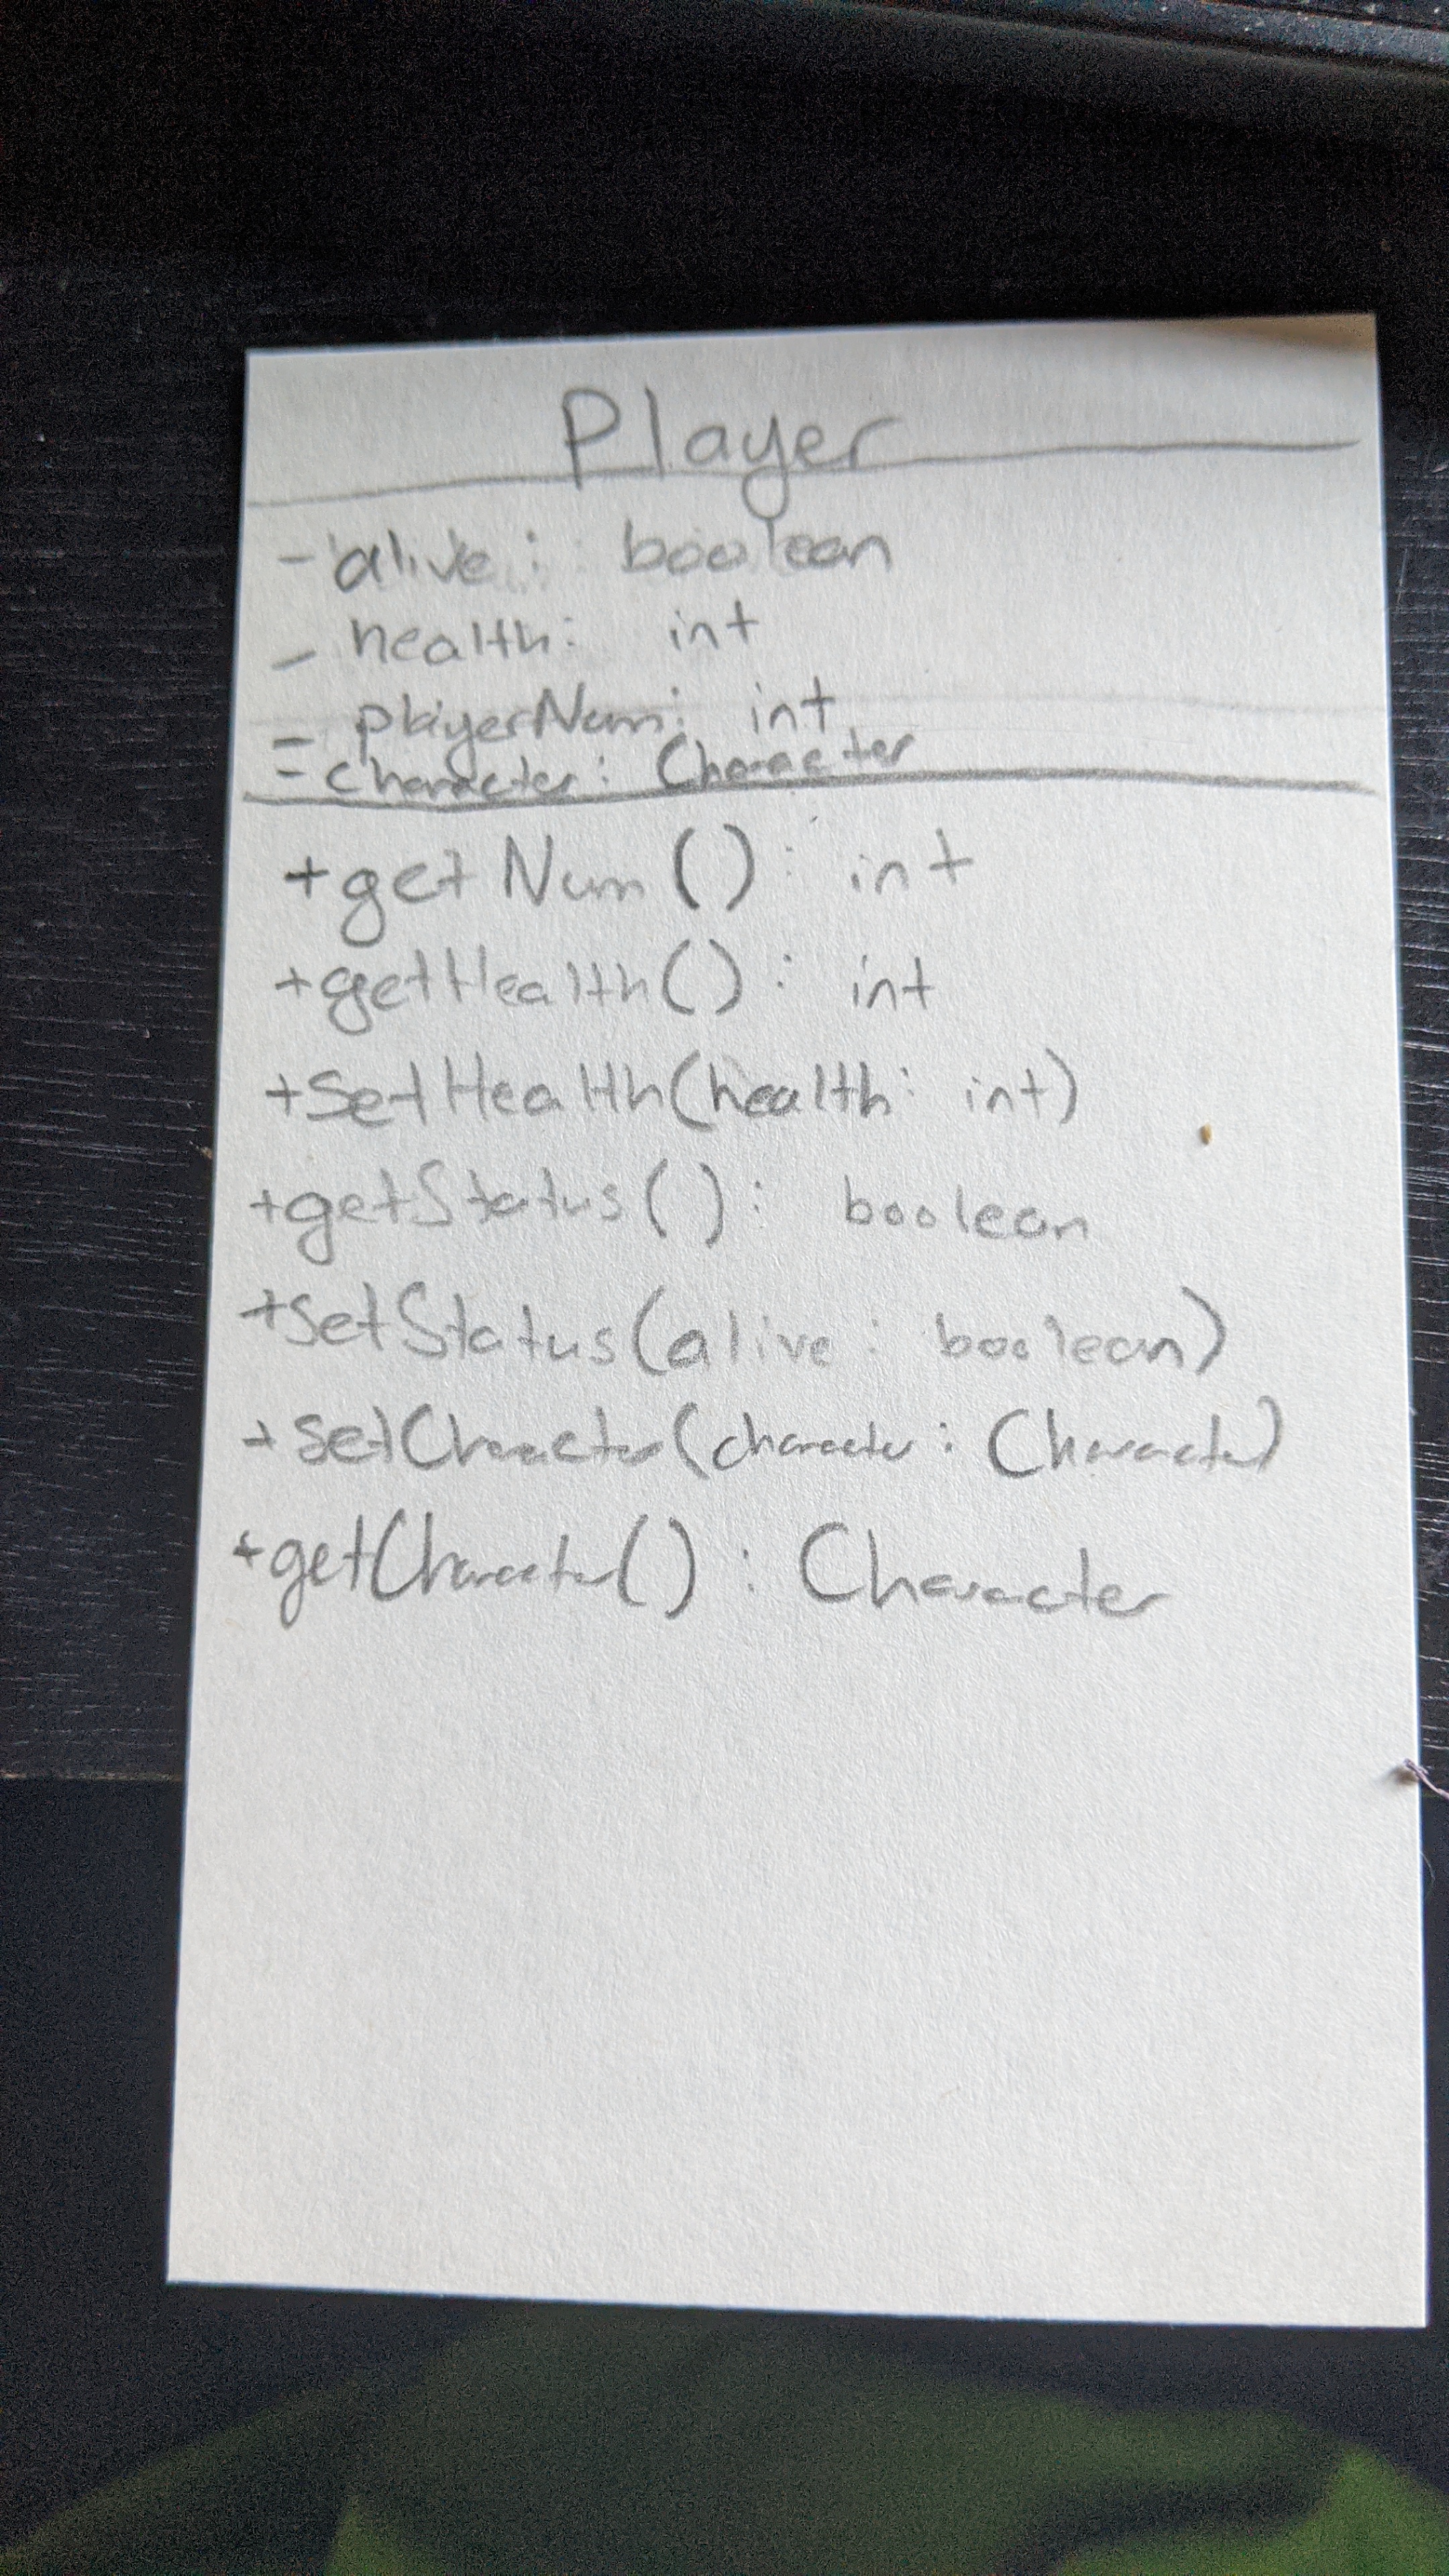 Player
- alive: boolean
- health: int
- playerNum: int
- character: Character
+getNum(): int
+getHealth(): int
+SetHealth(health: int)
+getStatus(): boolean
+SetStatus(alive: boolean)
+SetCharacter(character: Character)
+getCharacter(): Character